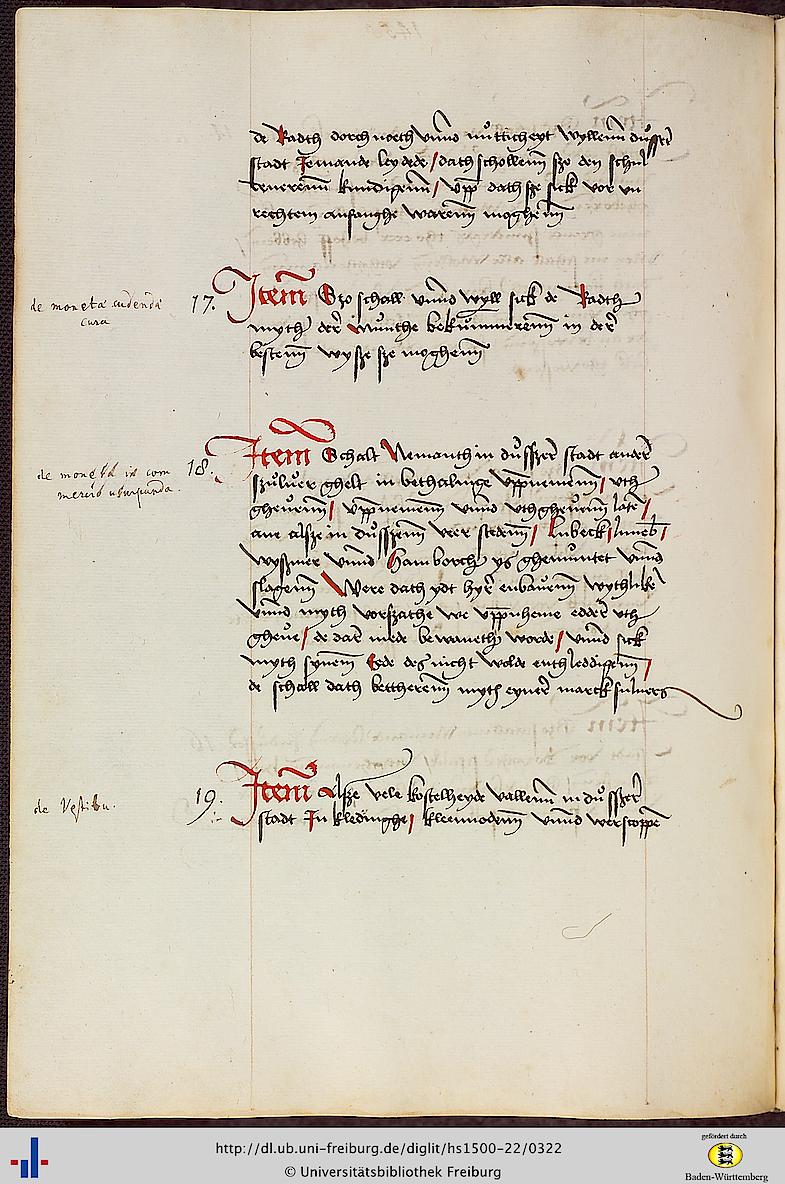 de Radth dorch noeth vnnd nutticheyt wyllenn dusser
stadt Jemande leydede / dath schollenn sze den schul
denerenn kundigenn / vpp dath sze sick vor vn
rechtem anfanghe warenn moghenn
de moneta cudenda
cura
17.
Item Szo schall vnnd wyll sick de Radth
myth der Munthe bekummerenn in der
bestenn wysze sze moghenn
de moneta in com
mercio usurpanda.
18.
Item Schalt Nemanth in dusszer stadt ander
szuluer ghelt in bethalinge vppnemenn / vth
gheuenn / vppnemenn vnnd vthgheuenn laten /
ane alsze in dusszenn veer stedenn / Lubeck / luneb /
wyszmer vnnd Hamborch ys ghemuntet vnnd
slagenn Were dath ydt hyr enbauenn wythlike
vnnd myth vorszathe we vppnheme edder vth
gheue / de dar mede bewaneth worde / vnnd sick
myth synem Eede des nicht wolde enthleddigenn /
de schall dath betherenn myth eyner marck suluers
de Vestibu.
19.
Item Alsze vele kostelheyde vallenn in dusszer
stadt Jn kledinghe / kleinnodenn vnnd werscoppe
http://dl.ub.uni-freiburg.de/diglit/hs1500-22/0322
© Universitätsbibliothek Freiburg
gefördert durch
Baden-Württemberg